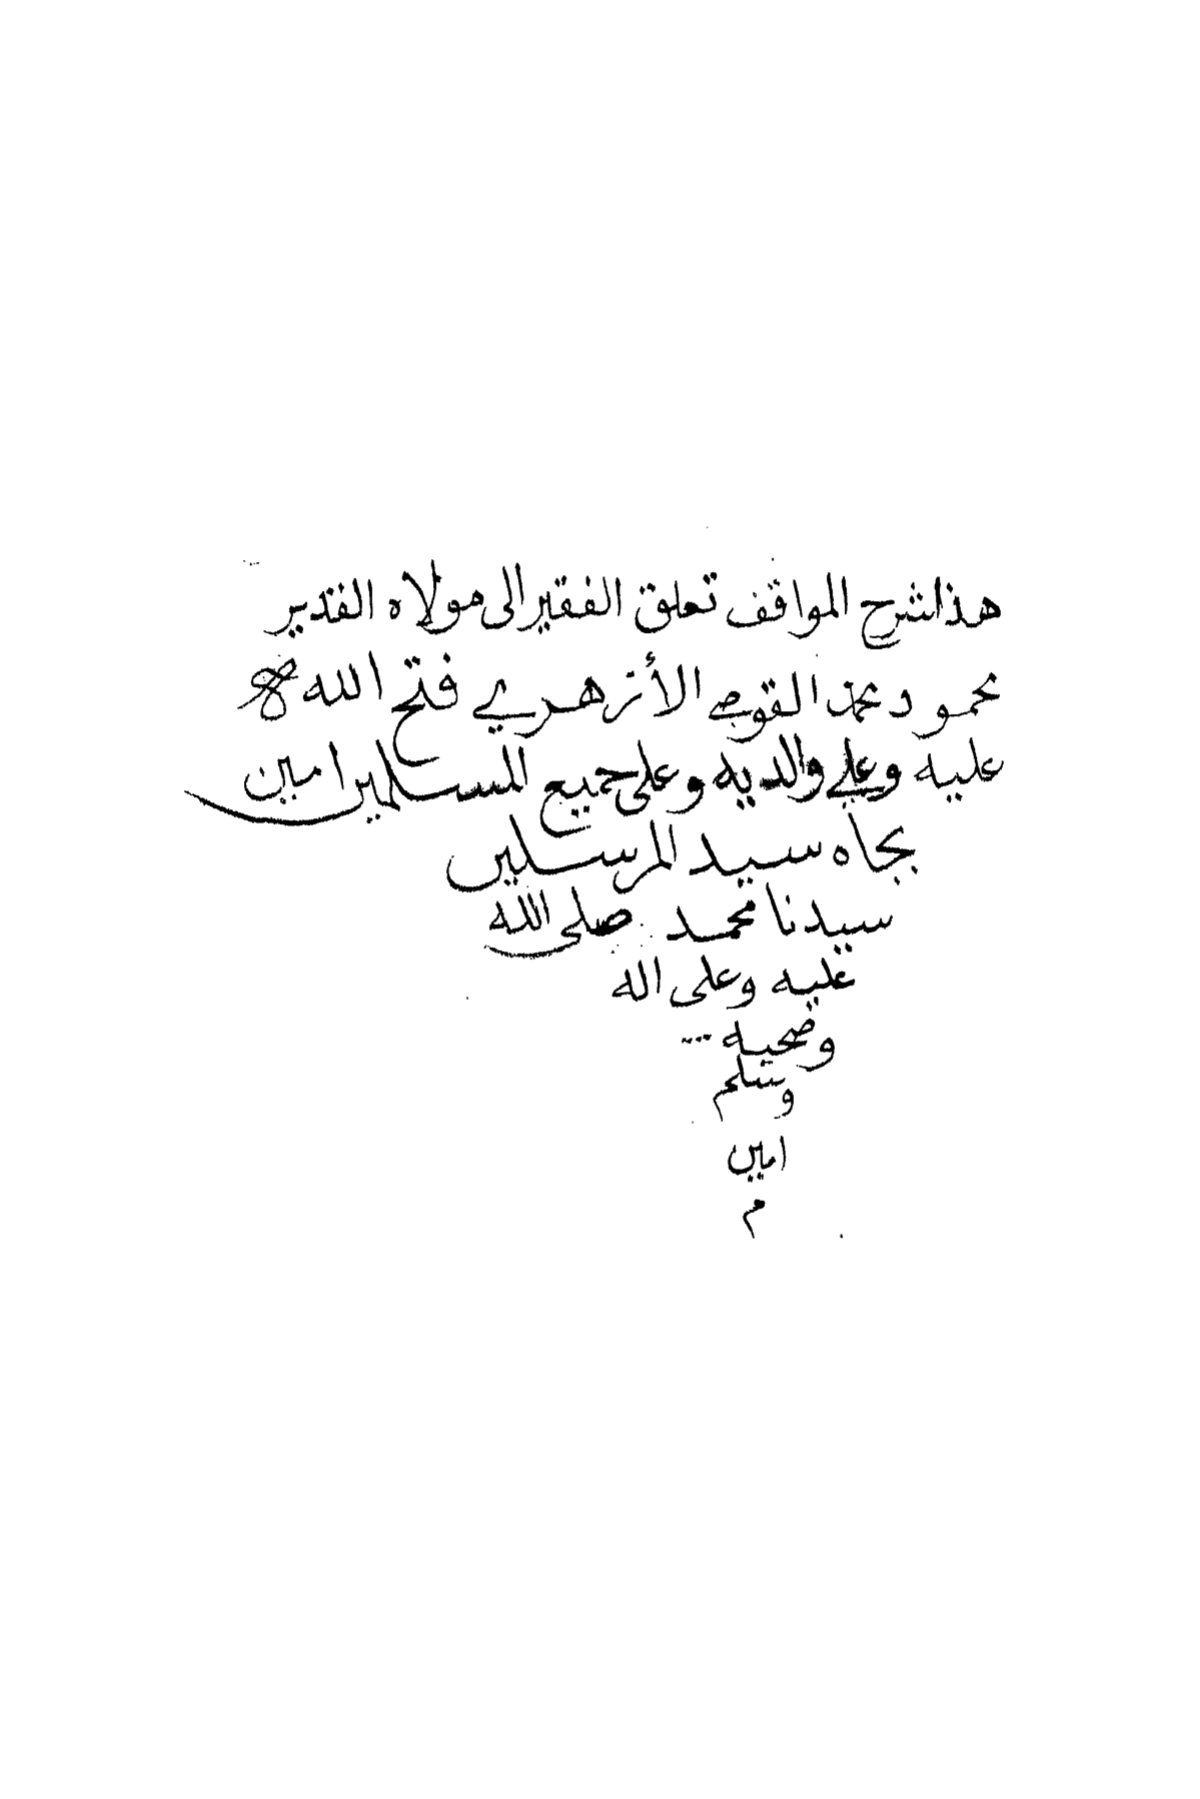 هذا شرح المواقف تعلق الفقير الى مولاه القدير
محمود محمد القوصي الأزهري فتح الله
عليه وعلي والديه وعلى جميع المسلمين امين
بجاه سيد المرسلين
سيدنا محمد صلى الله
عليه وعلى اله
وصحبه
وسلم
امين
م